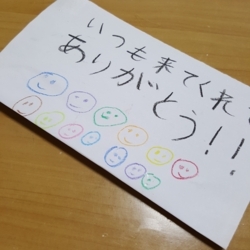 いつも来てくれ
ありがとう!!